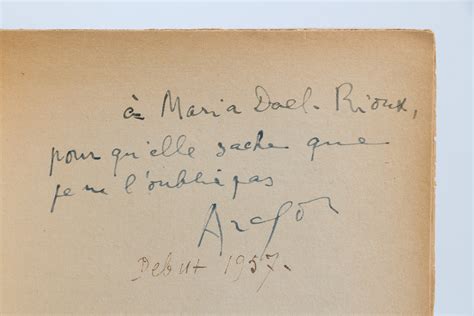 à Maria Doel-Rioux,
pour qu'elle sache que
je ne l'oublie pas
Aragon
Début 1957.